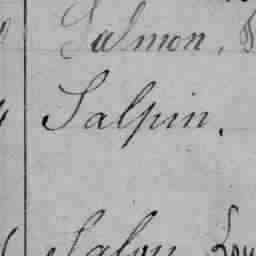 Salmon,
Salpin.
Salou